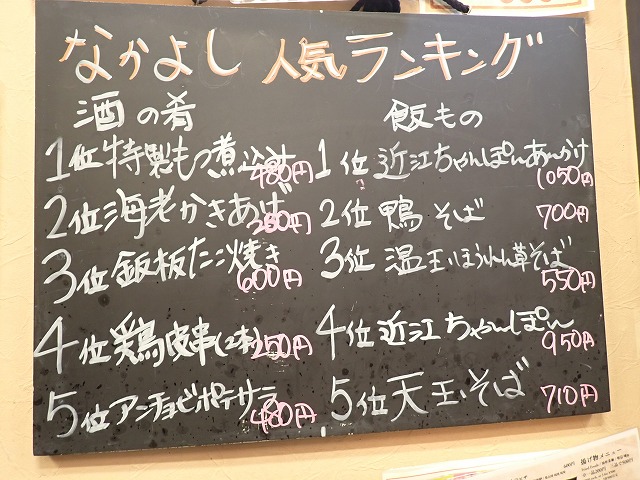 なかよし 人気ランキング
酒の肴
1位 特製もつ煮込み 480円
2位 海老かきあげ 360円
3位 鈑板たこ焼き 600円
4位 鶏皮串(2本) 250円
5位 アンチョビポテサラ 480円
飯もの
1位 近江ちゃんぽんあんかけ 1050円
2位 鴨そば 700円
3位 温玉ほうれん草そば 550円
4位 近江ちゃんぽん 950円
5位 天玉そば 710円
揚げ物メニュー